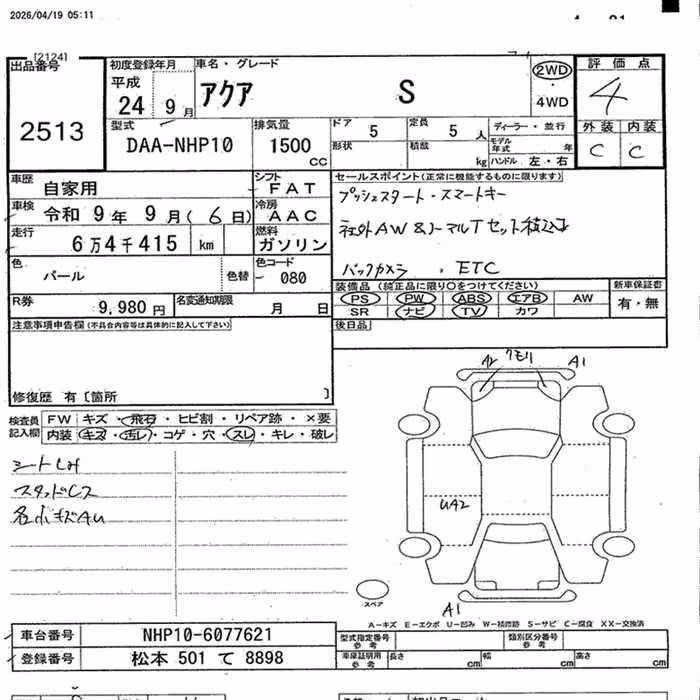 2026/04/19 05:11
[2124]
出品番号
2513
初度登録年月
平成
24 9 月
車名・グレード
アクア S
2WD
・
4WD
評価点
4
外装 内装
C C
型式
DAA-NHP10
排気量
1500
CC
ドア 5
定員 5 人
形状
積載 kg
ディーラー・並行
モデル年式 年
ハンドル 左・右
車歴
自家用
シフト
FAT
車検
令和 9 年 9 月 ( 6 日)
冷房
AAC
走行
6万4千415 km
燃料
ガソリン
色
パール
色替
色コード
080
R券
9,980 円
名変通知期限
月 日
セールスポイント(正常に機能するものに限ります)
プッシュスタート・スマートキー
社外AW&ノーマルTセット積込み
バックカメラ . ETC
装備品 (純正品に限り○をつけてください)
PS PW ABS エアB AW
SR ナビ TV カワ
新車保証書
有・無
後日品
注意事項申告欄(不具合内容等は具体的に記入して下さい)
修復歴 有〔箇所 〕
検査員記入欄
FW キズ・飛石・ヒビ割・リペア跡・×要
内装 キズ・汚レ・コゲ・穴・スレ・キレ・破レ
A1
UA2
A1
スペア
A-キズ E-エクボ U-凹み W-補修跡 S-サビ C-腐食 XX-交換済
車台番号
NHP10-6077621
登録番号
松本 501 て 8898
型式指定番号
参考
類別区分番号
参考
車庫証明用
参考
長さ cm
幅 cm
高さ cm